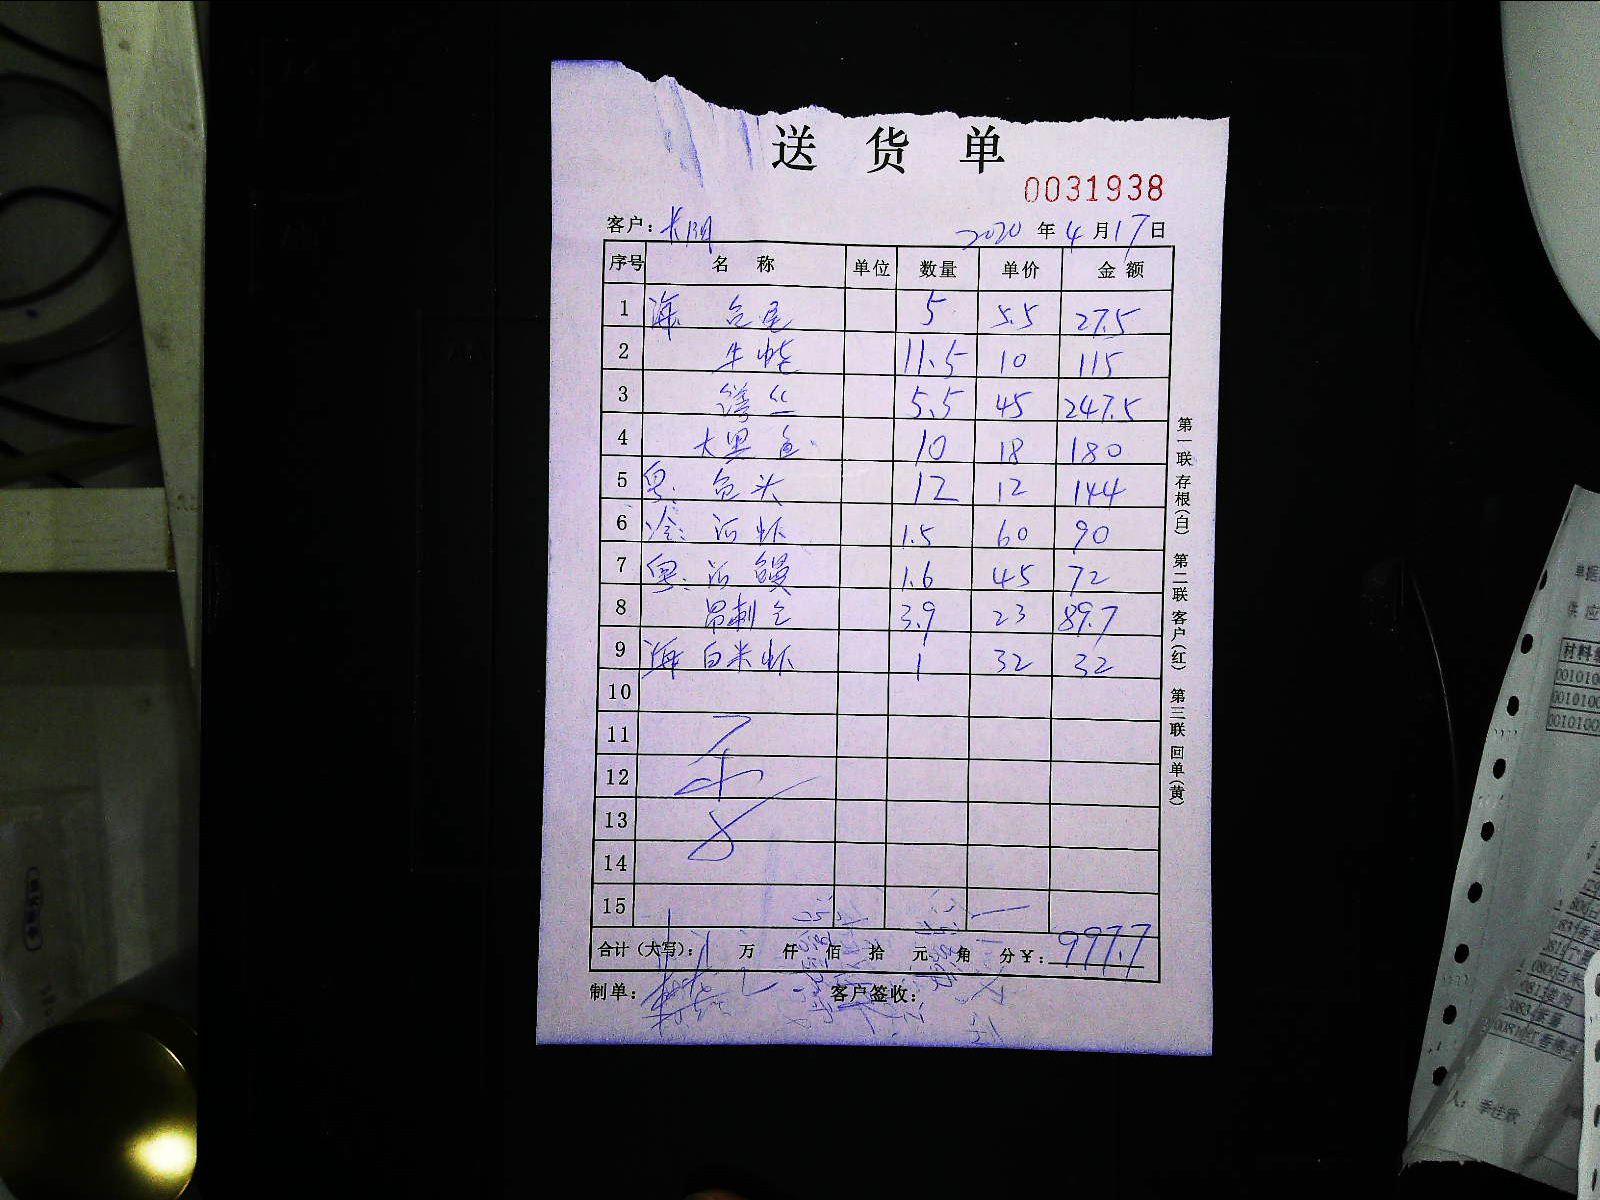 送 货 单
0031938
客户: 长阳 2020 年 4 月 17 日
序号 名 称 单位 数量 单价 金 额
1 海 鱼尾 5 5.5 27.5
2 牛蛙 11.5 10 115
3 鳝丝 5.5 45 247.5
4 大黑鱼 10 18 180
5 粤: 鱼头 12 12 144
6 冷: 河虾 1.5 60 90
7 粤: 河鳗 1.6 45 72
8 昂刺鱼 3.9 23 89.7
9 海 白米虾 1 32 32
10
11
12
13
14
15
合计(大写): 万 仟 佰 拾 元 角 分 ¥: 997.7
制单: 客户签收:
第一联 存根(白) 第二联 客户(红) 第三联 回单(黄)
单据
供 应
材料